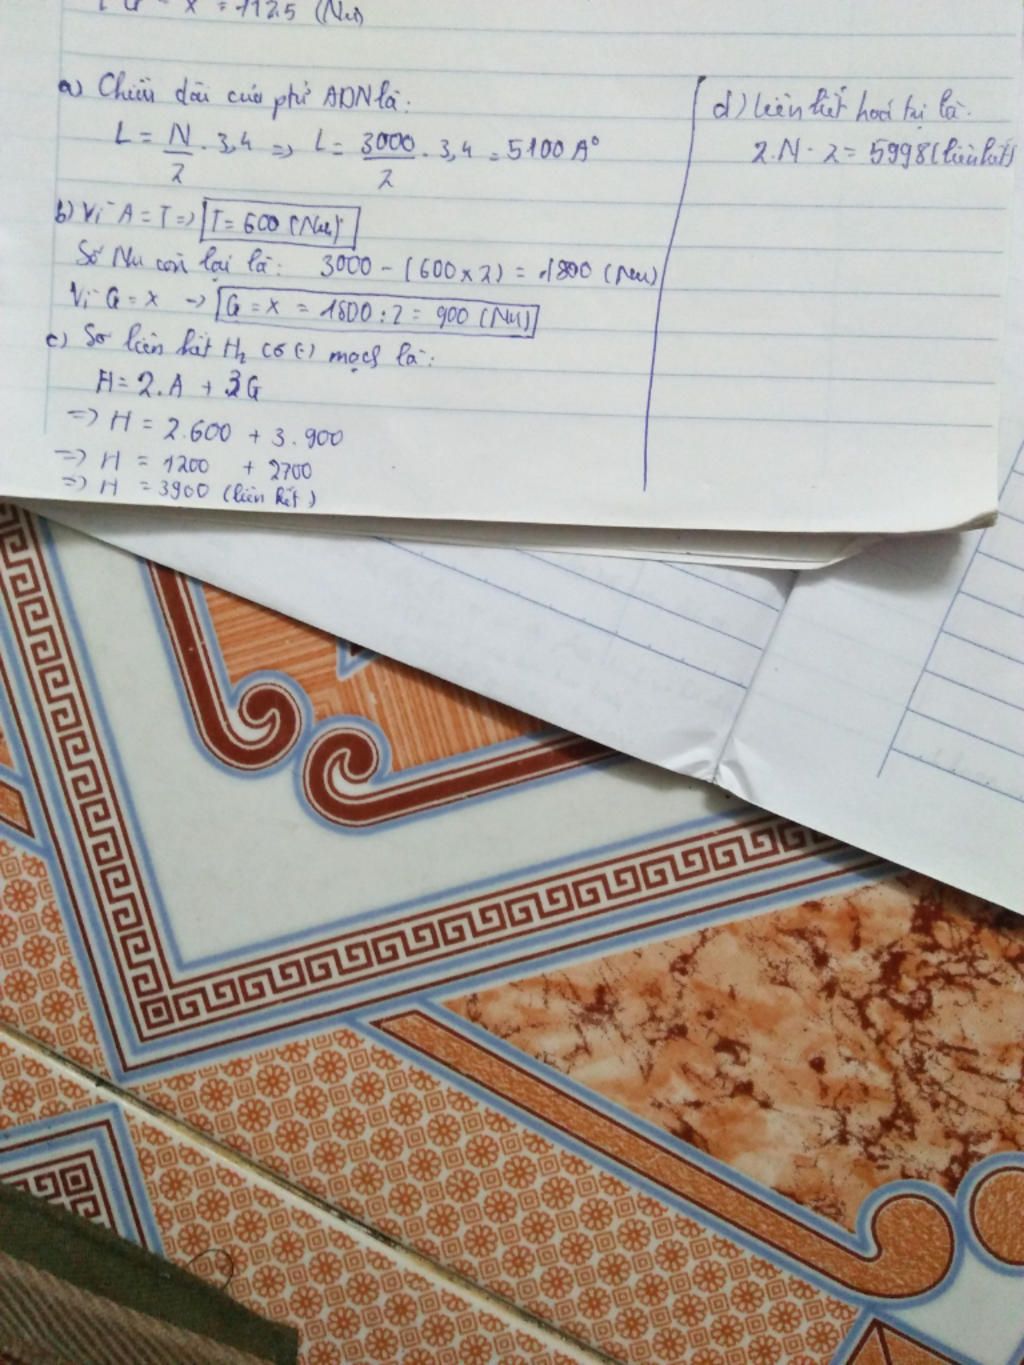 x = 1125 (Nu)
a) Chiều dài của ptử ADN là:
L = N/2 . 3,4 => L = 3000/2 . 3,4 = 5100 A°
b) Vì A = T => T = 600 (Nu)
Số Nu còn lại là: 3000 - (600 x 2) = 1800 (Nu)
Vì G = X -> G = X = 1800 : 2 = 900 (Nu)
c) Số liên kết H₂ có (-) mạch là:
H = 2.A + 3G
=> H = 2.600 + 3.900
=> H = 1200 + 2700
=> H = 3900 (liên kết)
d) Liên kết hoá trị là.
2.N - 2 = 5998 (liên kết)